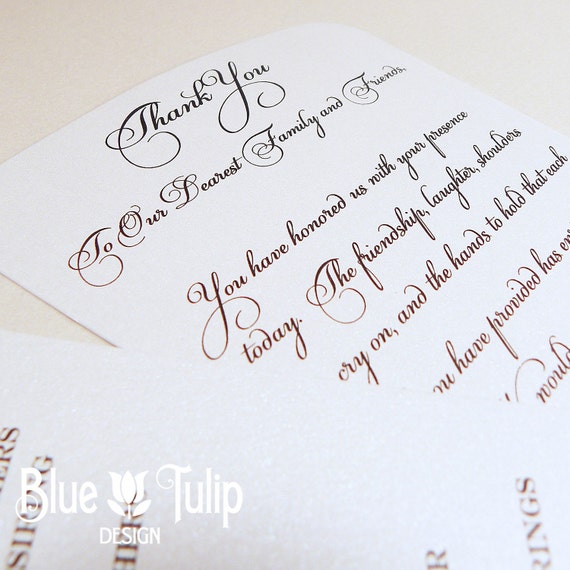 Thank You
To Our Dearest Family and Friends,
You have honored us with your presence
today. The friendship, laughter, shoulders
cry on, and the hands to hold that each
have provided has
would
RINGS
Blue Tulip
DESIGN